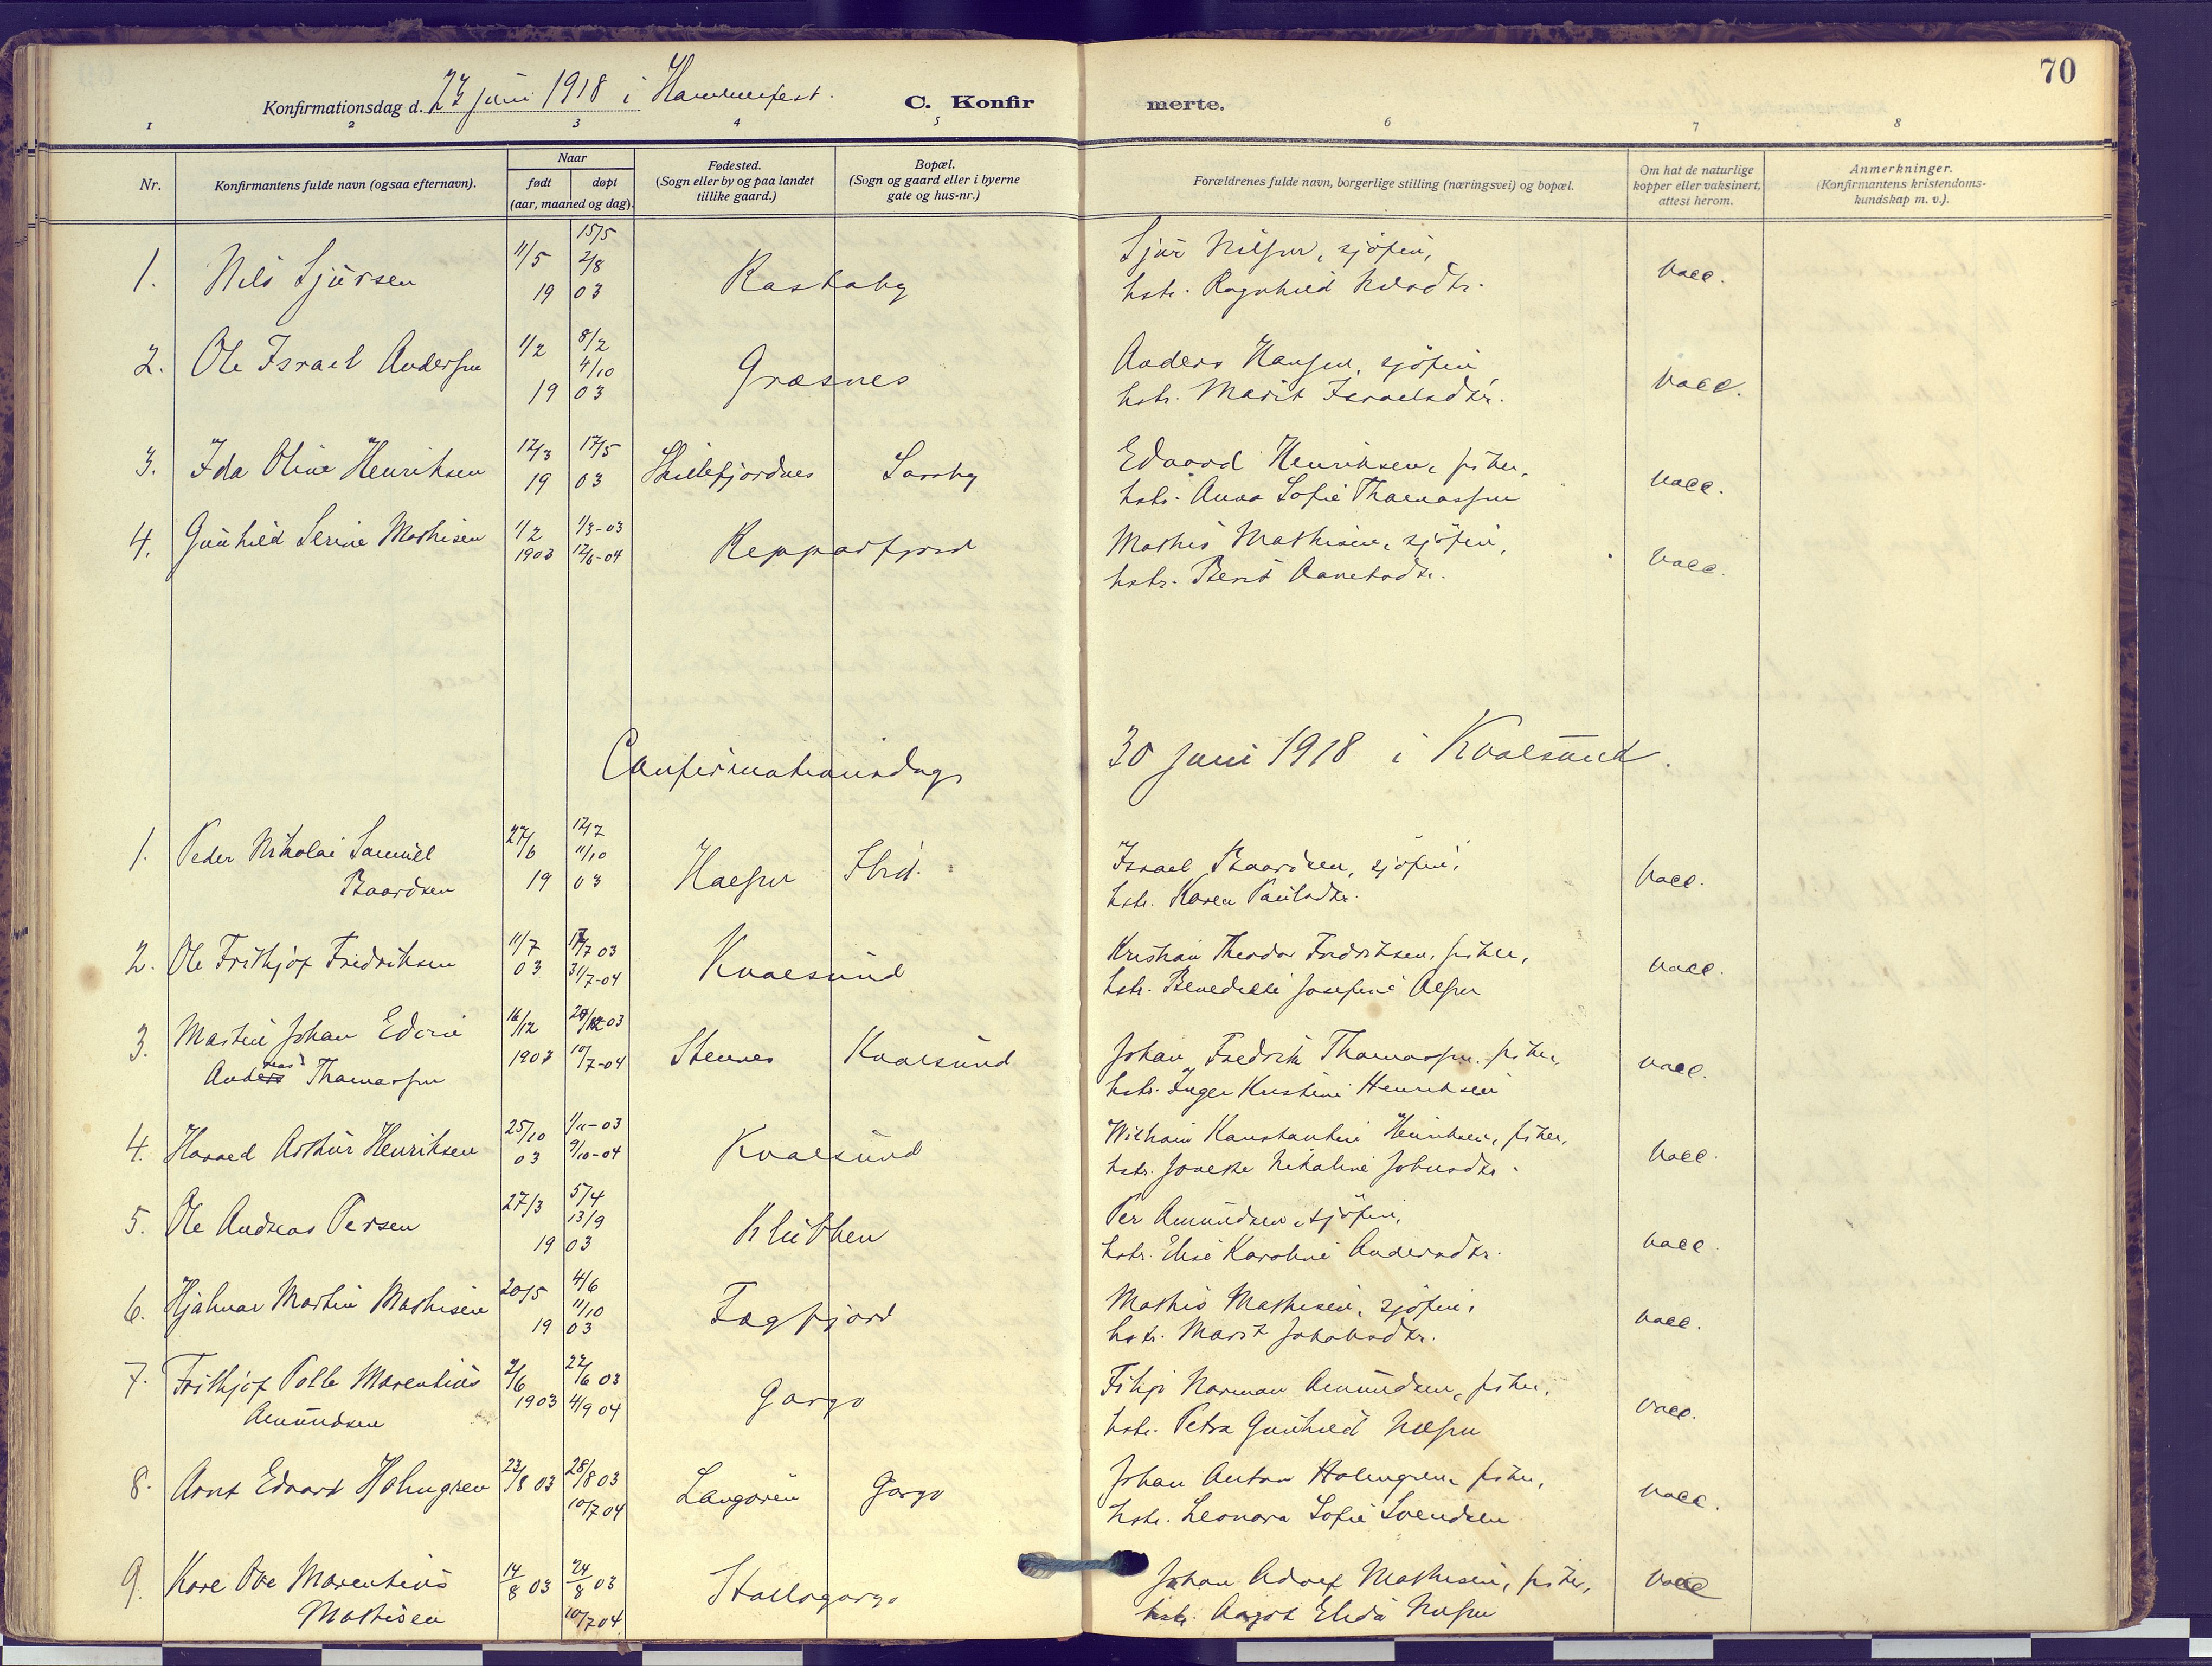 70
Konfirmationsdag d. 23 juni 1918 i Hammerfest.
C. Konfirmerte.
1 2 3 4 5 6 7 8
Nr.
Konfirmantens fulde navn (ogsaa efternavn).
Naar
født
døpt
(aar, maaned og dag).
Fødested.
(Sogn eller by og paa landet
tillike gaard.)
Bopæl.
(Sogn og gaard eller i byerne
gate og hus-nr.)
Forældrenes fulde navn, borgerlige stilling (næringsvei) og bopæl.
Om hat de naturlige
kopper eller vaksinert,
attest herom.
Anmerkninger.
(Konfirmantens kristendoms-
kundskap m. v.).
1. Nils Sjursen 11/5 15/5 2/8 1903
Sjur Nilsen, sjøfin,
hstr. Ragnhild Nilsdtr. vacc.
2. Ole Israel Andersen 1/2 8/2 4/10 1903 Græsnes
Anders Hansen, sjøfin
hstr. Marit Israelsdtr. vacc.
3. Ida Oline Henriksen 12/3 17/5 1903 Skillefjordnes Saraby
Edvard Henriksen, fisker,
hstr. Anna Sofie Thomassen vacc.
4. Gunhild Serine Mathisen 1/2 1903 1/3-03 12/6-04 Repparfjord
Mathis Mathisen, sjøfin,
hstr. Berit vacc.
Confirmationsdag 30 juni 1918 i Kvalsund.
1. Peder Nikolai Samuel
Baardsen 27/6 12/7 11/10 1903 Ibid.
Israel Baardsen, sjøfin,
hstr. Karen Paulsdtr. vacc.
2. Ole Frithjof Fredriksen 11/7 03 17/7 03 31/7-04 Kvalsund
Kristian Theodor Fredriksen, fisker,
hstr. Benedikte Josefine Olsen vacc.
3. Martin Johan Edvin
Andreas Thomassen 16/12 1903 10/7-04 Stennes Kvalsund
Johan Fredrik Thomassen, fisker,
hstr. Inger Kristine Henriksen vacc.
4. Harald Arthur Henriksen 25/10 03 1/11-03 9/10-04 Kvalsund
Wilhelm Konstantin Henriksen, fisker,
hstr. Nikoline vacc.
5. Ole Andreas Persen 27/3 5/4 13/9 1903 Klubben
Per Amundsen, sjøfin,
hstr. Elise Karoline Andersdtr. vacc.
6. Hjalmar Martin Mathisen 20/5 4/6 11/10 1903 Fægfjord
Mathis Mathisen, sjøfin,
hstr. Marit vacc.
7. Frithjof Polle Marentius
Amundsen 2/6 1903 22/6 03 4/9 04 Gargo
Filip Norman Amundsen, fisker,
hstr. Petra Gunhild Nilsen vacc.
8. Arnt Edvart Holmgren 23/8 03 28/8 03 10/7 04 Langøren Gargo
Johan Anton Holmgren, fisker,
hstr. Leonora Sofie Svendsen vacc.
9. Kare Ove Marentius
Mathisen 14/8 03 24/8 03 10/7 04 Stallogargo
Johan Adolf Mathisen, fisker,
hstr. Aagot Elida Nilsen vacc